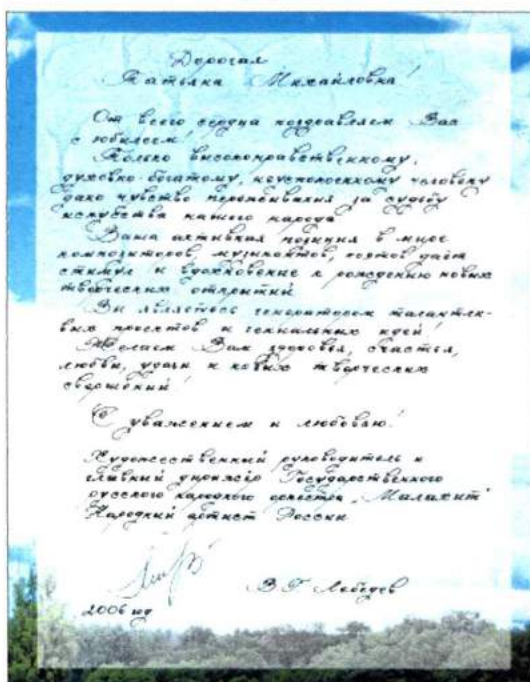 Дорогая
Татьяна Михайловна!
От всего сердца поздравляем Вас
с юбилеем!
Только высоконравственному,
духовно-богатому, неуспокоенному человеку
дано чувство переживания за судьбу
искусства нашего народа
Ваша активная позиция в мире
композиторов, музыкантов, поэтов даёт
стимул и вдохновение к рождению новых
творческих открытий
Вы являетесь генератором талантли-
вых проектов и гениальных идей!
Желаем Вам здоровья, счастья,
любви, удачи и новых творческих
свершений!
С уважением и любовью!
Художественный руководитель и
главный дирижёр Государственного
русского народного оркестра „Малахит"
Народный артист России
В.Г. Лебедев
2006 год